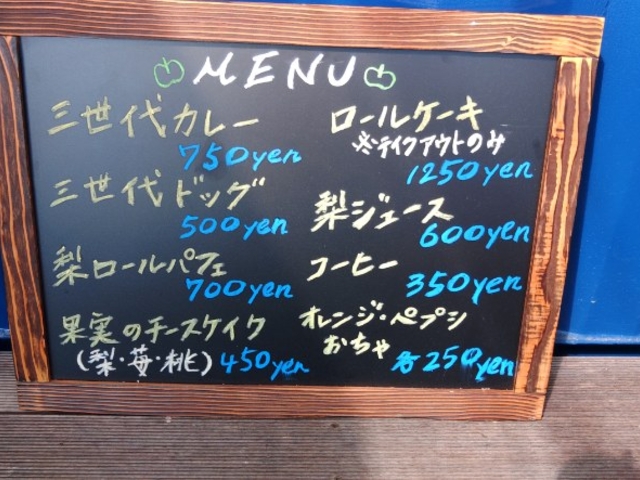 MENU
三世代カレー
750yen
三世代ドッグ
500yen
梨ロールパフェ
700yen
果実のチースケイク
(梨・苺・桃) 450yen
ロールケーキ
※テイクアウトのみ
1250yen
梨ジュース
600yen
コーヒー
350yen
オレンジ・ペプシ
おちゃ
各250yen